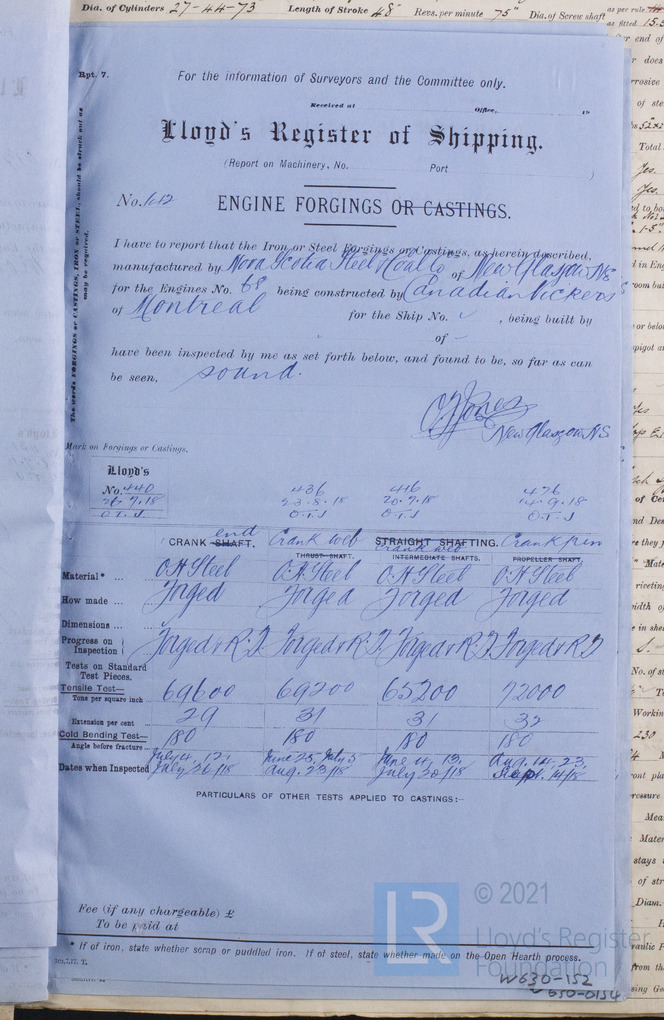 Dia. of Cylinders 27-44-73 Length of Stroke 48" Revs. per minute 75" Dia. of Screw shaft as per rule
as fitted 15.5
Rpt. 7.
For the information of Surveyors and the Committee only.
Received at Office, 19
Lloyd's Register of Shipping.
(Report on Machinery, No. Port )
No. 1612
ENGINE FORGINGS OR CASTINGS.
The words FORGINGS or CASTINGS, IRON or STEEL, should be struck out as may be required.
I have to report that the Iron or Steel Forgings or Castings, as herein described,
manufactured by Nova Scotia Steel & Coal Co of New Glasgow NS
for the Engines No. 68 being constructed by Canadian Vickers
of Montreal for the Ship No. , being built by
of -
have been inspected by me as set forth below, and found to be, so far as can
be seen, sound.
O T Jones
New Glasgow NS
Mark on Forgings or Castings.
Lloyd's
No. 440 436 416 476
26.7.18 23.8.18 20.7.18 14.9.18
O.T.J O.T.J O.T.J O.T.J
CRANK SHAFT. end Crank web STRAIGHT SHAFTING. Crank pin
THRUST SHAFT. Crank web INTERMEDIATE SHAFTS. PROPELLER SHAFT.
Material* ... O.H Steel O.H Steel O.H Steel O.H Steel
How made ... Forged Forged Forged Forged
Dimensions ...
Progress on Inspection Forged & R.T Forged & R.T Forged & R.T Forged & R T
Tests on Standard
Test Pieces.
Tensile Test—
Tons per square inch 69600 69200 65200 72000
Extension per cent 29 31 31 32
Cold Bending Test—
Angle before fracture ... 180 180 180 180
July 4, 12, June 25, July 5 June 4, 13, Aug. 1st, 23,
Dates when Inspected July 26/18 Aug. 23/18 July 20/18 Sept. 14/18
PARTICULARS OF OTHER TESTS APPLIED TO CASTINGS:—
Fee (if any chargeable) £
To be paid at
* If of iron, state whether scrap or puddled iron. If of steel, state whether made on the Open Hearth process.
LR © 2021
Lloyd's Register
Foundation
W630-152
W630-0154